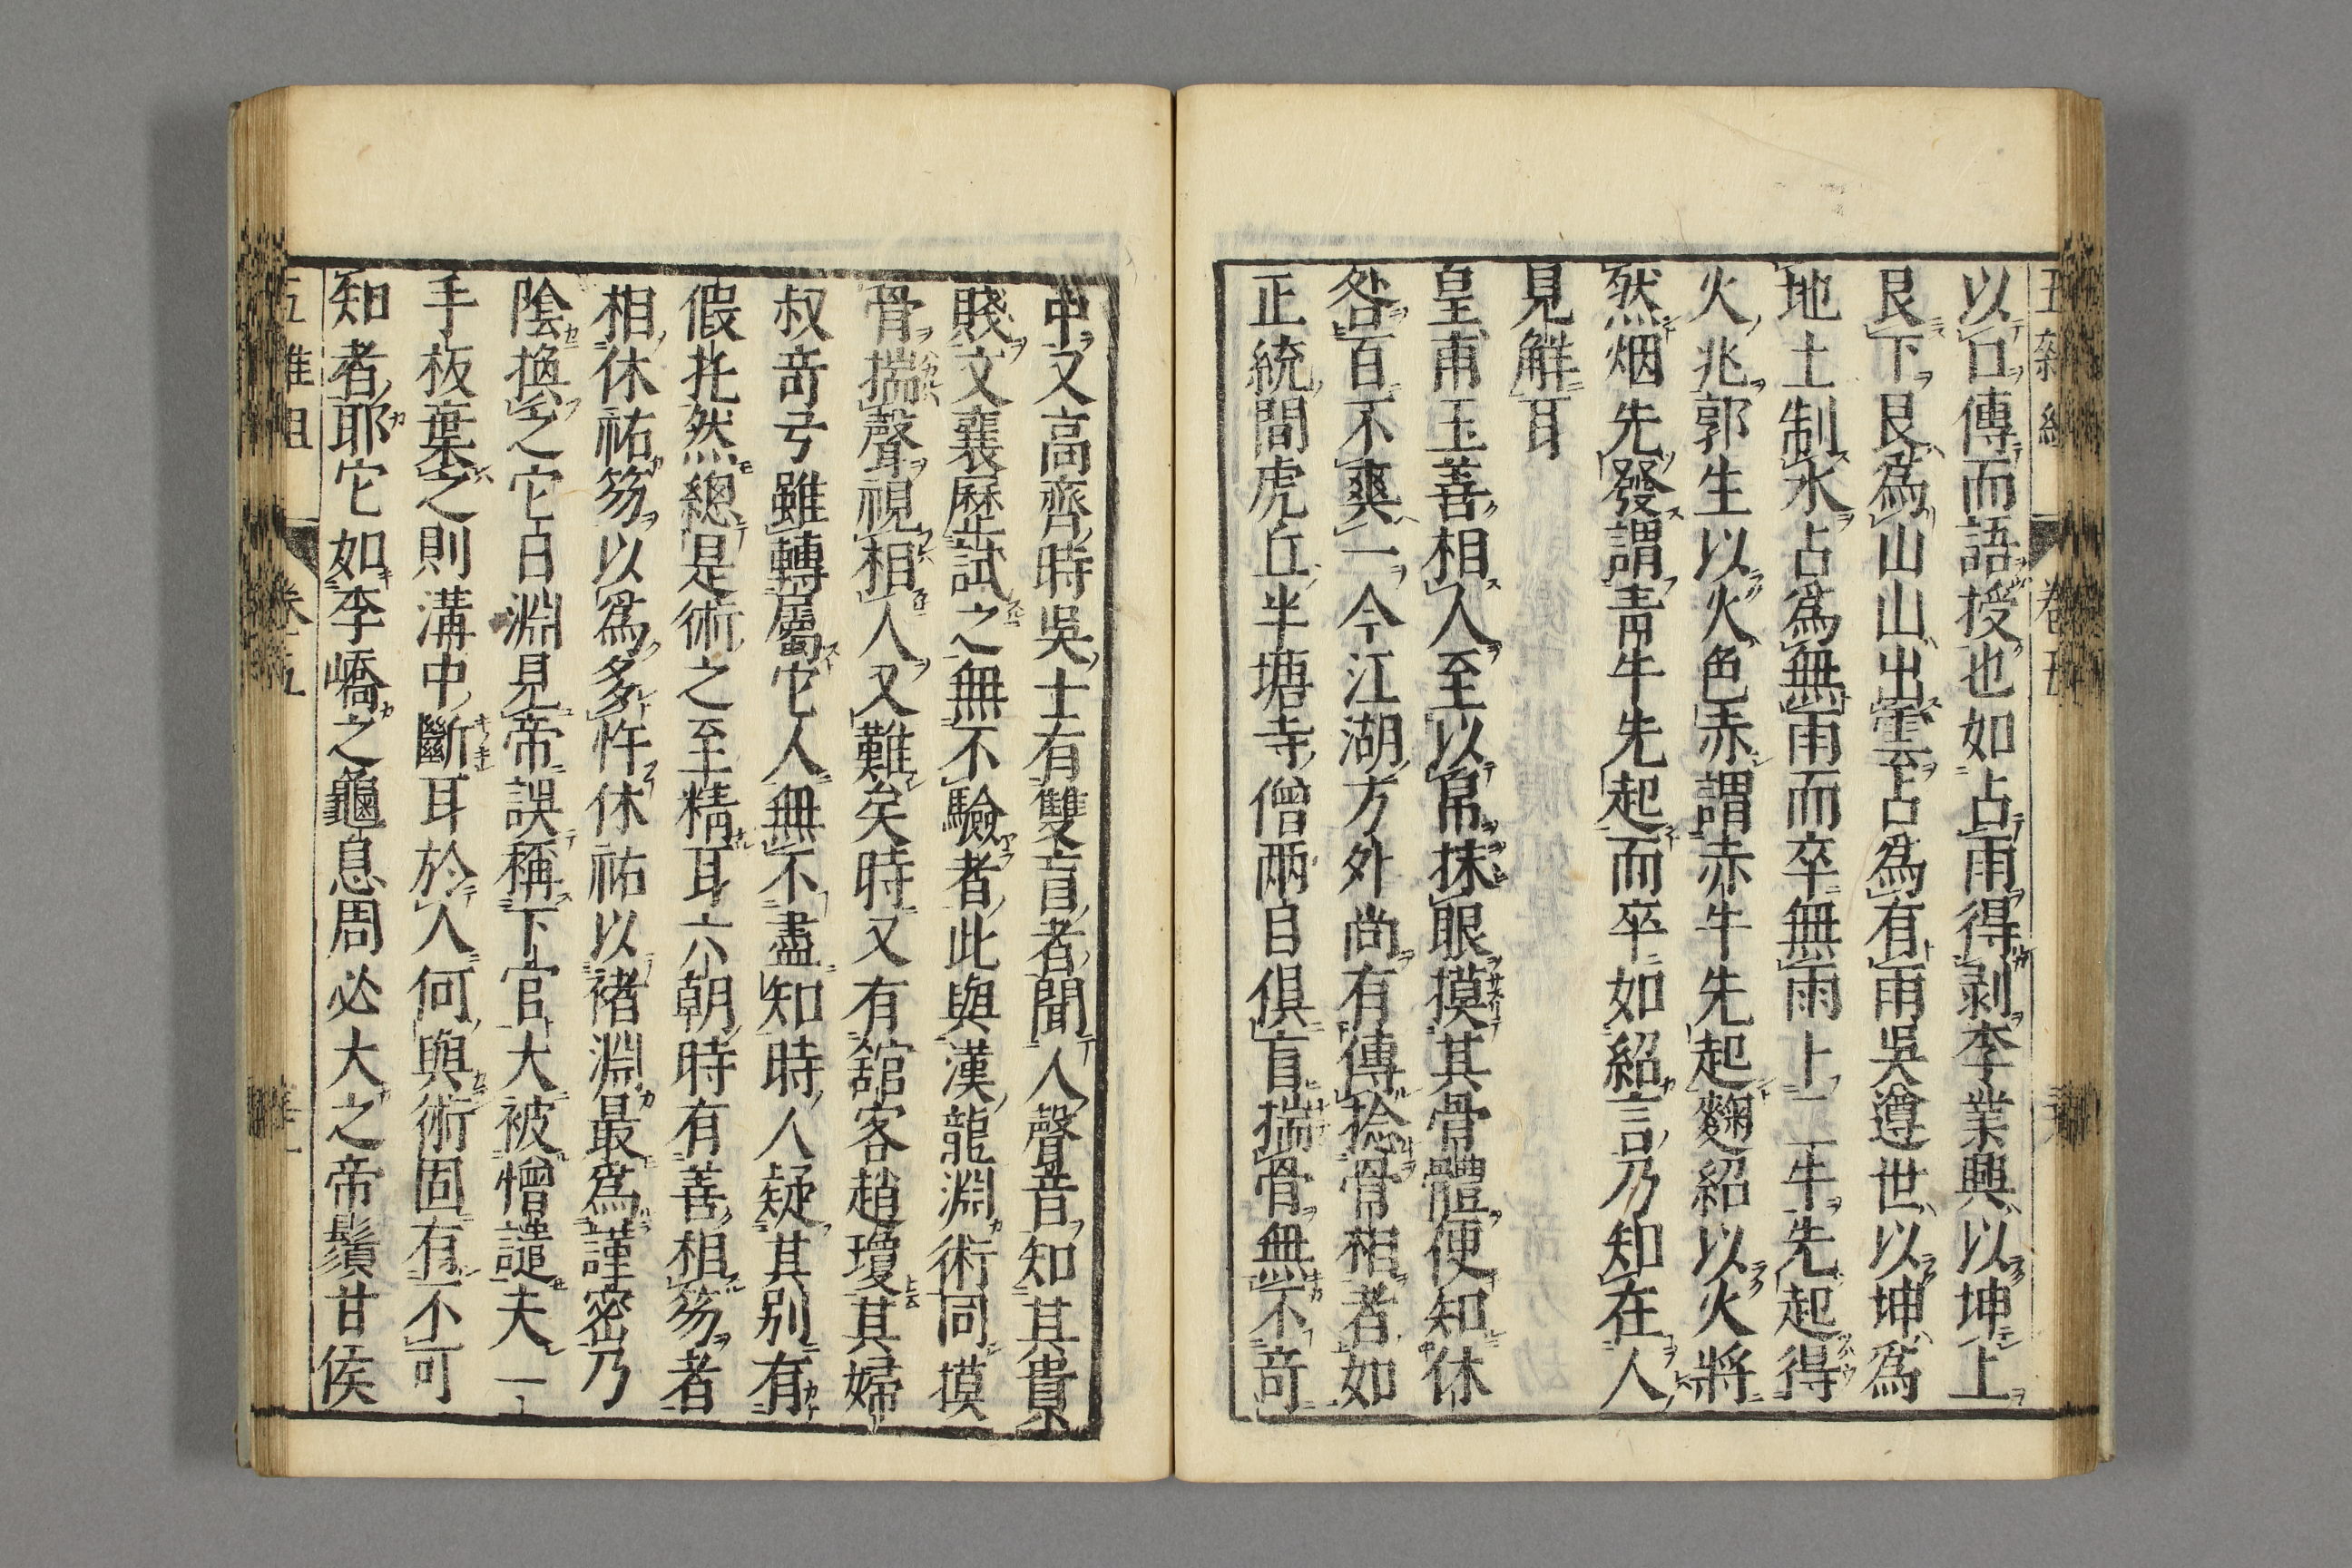 以口傳而語授也如占雨得剥李業興以坤上
艮下艮為山山出雲占為有雨吳遵世以坤為
地土制水占為無雨而卒無雨上二牛先起得
火兆郭生以火色赤謂赤牛先起麴紹以火將
然烟先發謂青牛先起而卒如紹言乃知在人
見解耳
皇甫玉善相人至以帛抹眼摸其骨體便知休
咎百不爽一今江湖方外尚有傳捻骨相者如
正統間虎丘半塘寺僧兩目俱盲揣骨無不竒
中又高齊時吳士有雙盲者聞人聲音知其貴
賤文襄歷試之無不驗者此與漢龍淵術同摸
骨揣聲視相人又難矣時又有舘客趙瓊其婦
叔竒弓雖轉屬它人無不盡知時人疑其别有
假托然總是術之至精耳六朝時有善相笏者
相休祐笏以為多忤休祐以褚淵最為謹密乃
陰換之它日淵見帝誤稱下官大被憎譴夫一
手板棄之則溝中斷耳於人何與術固有不可
知者耶它如李嶠之龜息周必大之帝鬚甘侯
五雜組 卷五